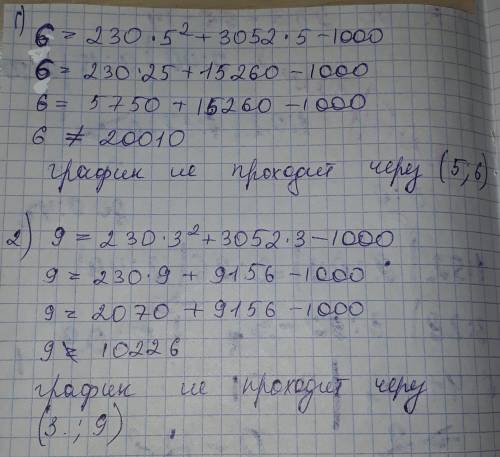 1) 6 = 230·5²+3052·5-1000
6 = 230·25+15260-1000
6 = 5750+15260-1000
6 ≠ 20010
график не проходит через (5;6)
2) 9 = 230·3²+3052·3-1000
9 = 230·9+9156-1000
9 = 2070+9156-1000
9 ≠ 10226
график не проходит через
(3.; 9)